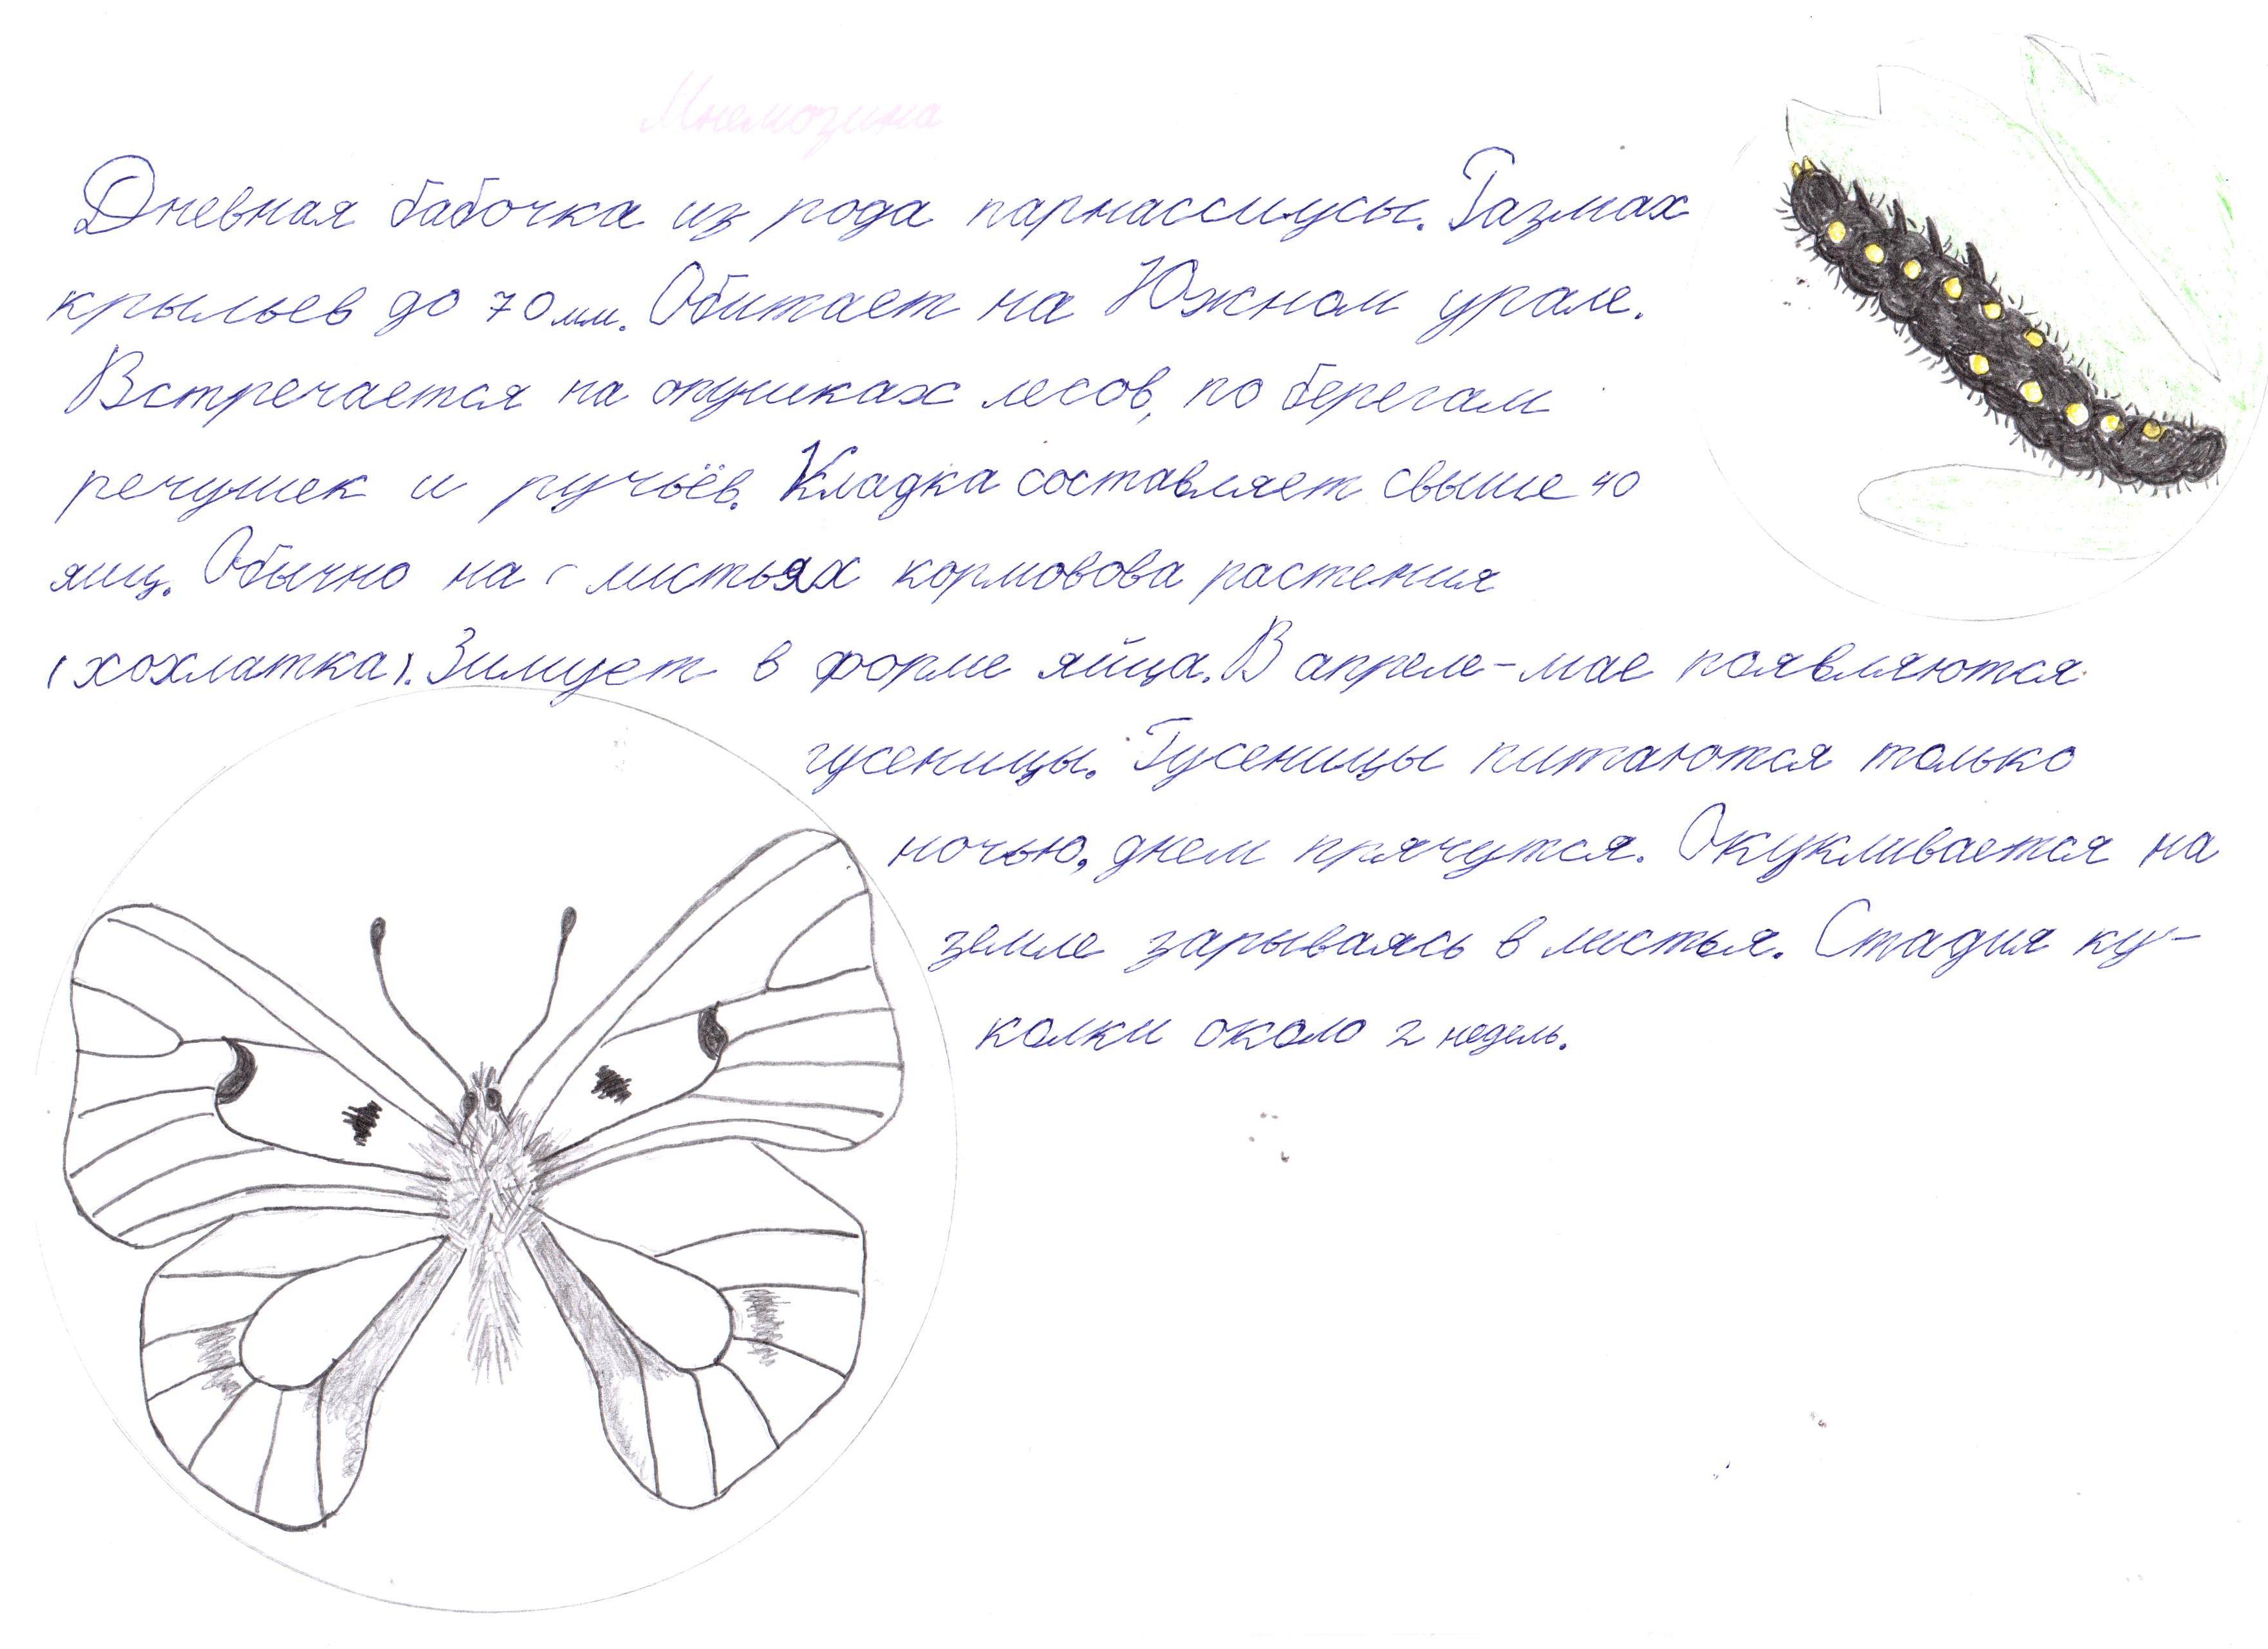 Мнемозина
Дневная бабочка из рода парнассиусы. Размах
крыльев до 70 мм. Обитает на Южном урале.
Встречается на опушках лесов, по берегам
речушек и ручьёв. Кладка составляет свыше 40
яиц. Обычно на листьях кормовова растения
(хохлатка). Зимует в форме яйца. В апреле-мае появляются
гусеницы. Гусеницы питаются только
ночью, днем прячутся. Окукливается на
земле зарываясь в листья. Стадия ку-
колки около 2 недель.